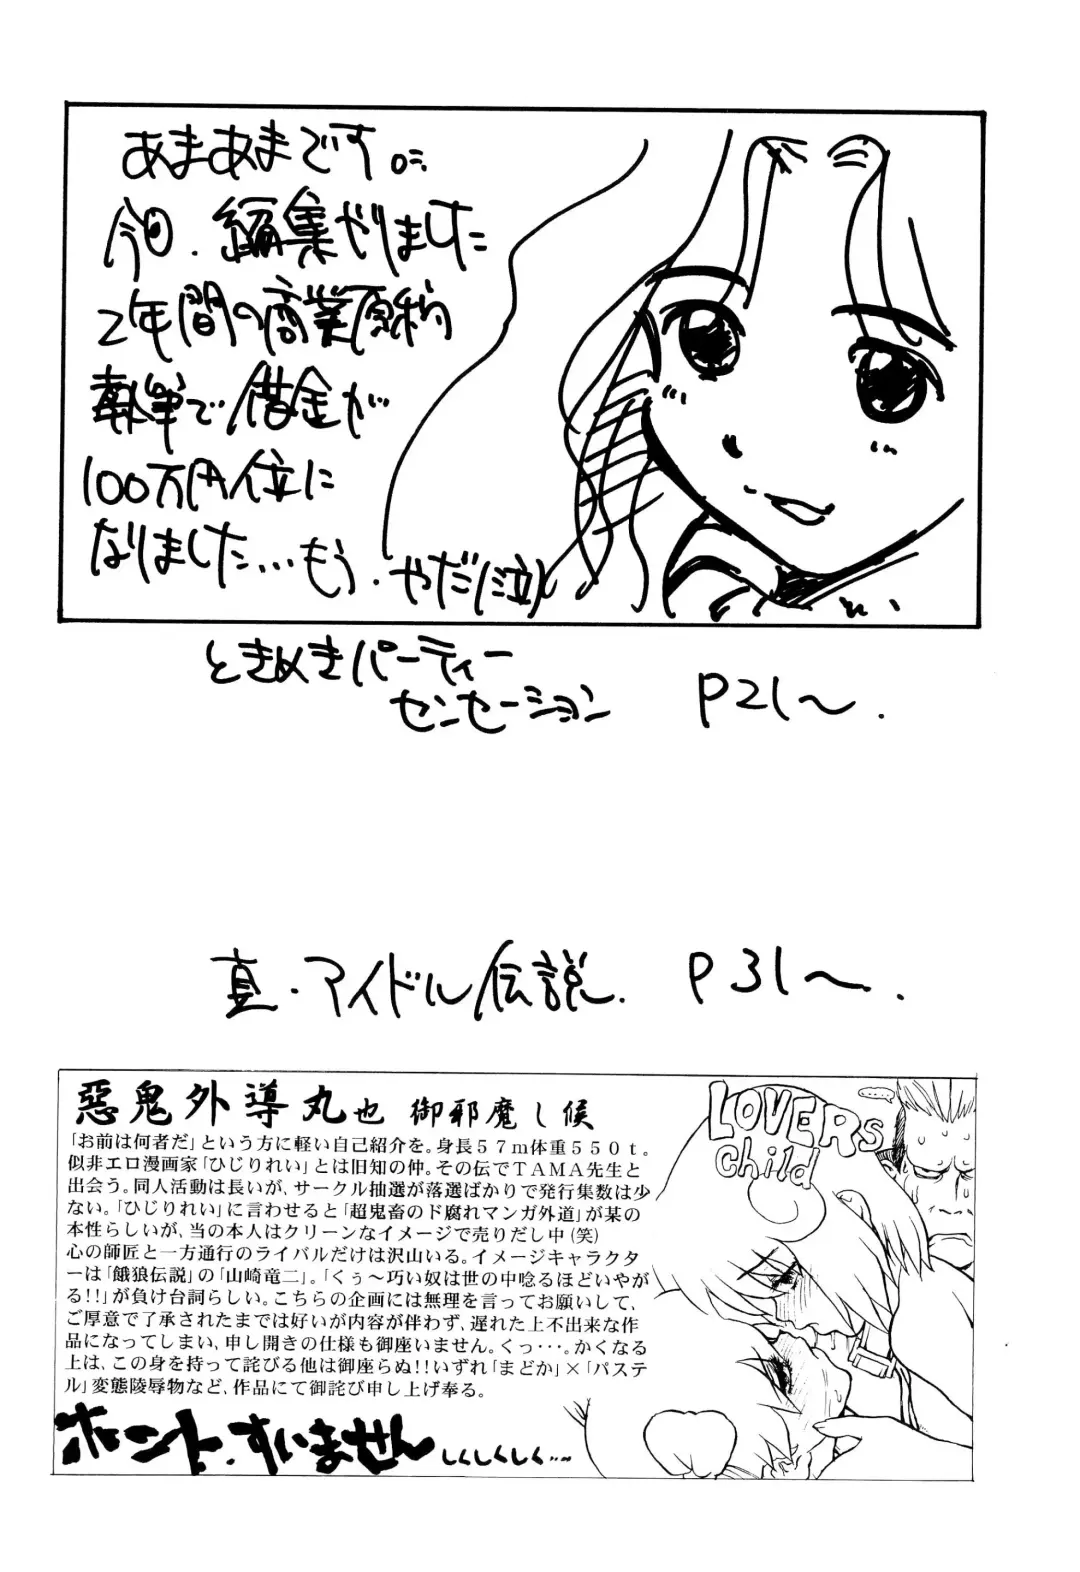 あまあまです。
今回、編集やりました
2年間の商業原稿
執筆で借金が
100万円位に
なりました...もう・やだ(泣)
ときめきパーティー
センセーション P21〜.
真・アイドル伝説. P31〜.
惡鬼外導丸也 御邪魔し候
「お前は何者だ」という方に軽い自己紹介を。身長57m体重550t。
似非エロ漫画家「ひじりれい」とは旧知の仲。その伝でTAMA先生と
出会う。同人活動は長いが、サークル抽選が落選ばかりで発行集数は少
ない。「ひじりれい」に言わせると「超鬼畜のド腐れマンガ外道」が某の
本性らしいが、当の本人はクリーンなイメージで売りだし中(笑)
心の師匠と一方通行のライバルだけは沢山いる。イメージキャラクタ
ーは「餓狼伝説」の「山崎竜二」。「くぅ〜巧い奴は世の中唸るほどいやが
る!!」が負け台詞らしい。こちらの企画には無理を言ってお願いして、
ご厚意で了承されたまでは好いが内容が伴わず、遅れた上不出来な作
品になってしまい、申し開きの仕様も御座いません。くっ・・・。かくなる
上は、この身を持って詫びる他は御座らぬ!!いずれ「まどか」×「パステ
ル」変態陵辱物など、作品にて御詫び申し上げ奉る。
ホント、すいません しくしくしく……
LOVERS
Child